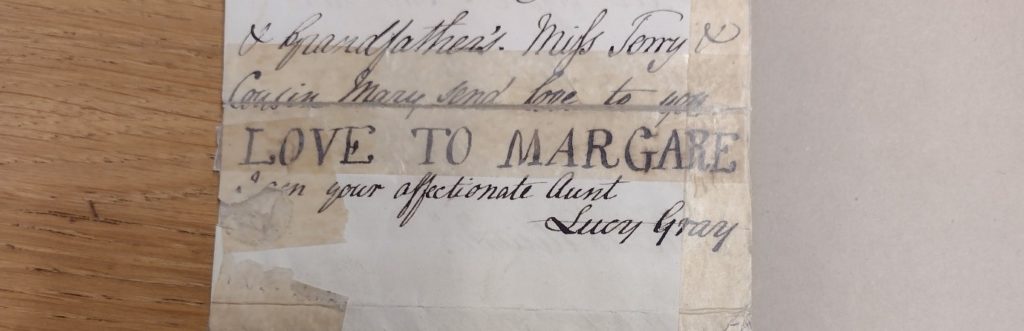 & Grandfather's. Miss Terry &
Cousin Mary send love to you
LOVE TO MARGARE
I am your affectionate Aunt
Lucy Gray